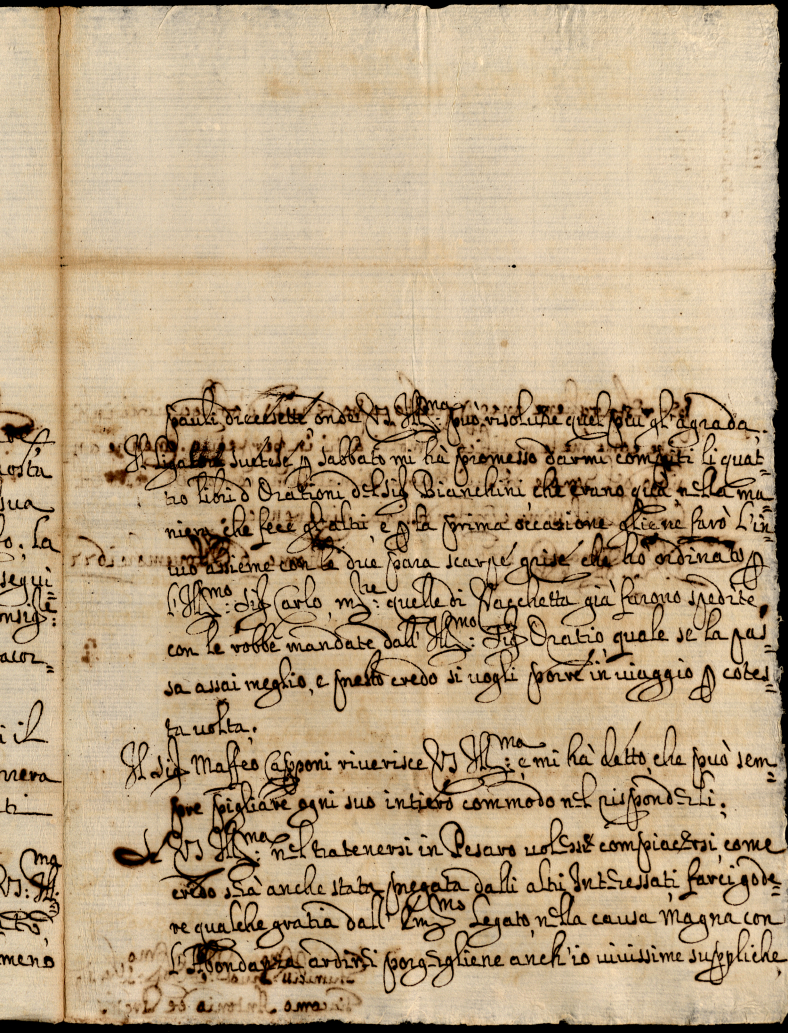 pauli diecesette onde VS Ill:ma può risolvere quel più gl'agrada.
Il suetese p sabbato mi hà promesso darmi compiti li quat=
tro libri d'Orationi del Sig Bianchini che erano già nella ma=
niera che fece gl'altri e p la prima occasione gliene farò l'in=
vio assieme con le due para scarpe grise che hò ordinato p
l'Ill:mo Sig Carlo, m:tre quelle di Vacchetta già furono spedite,
con le robbe mandate dall'Ill:mo Sig Oratio quale se la pas=
sa assai meglio, e presto credo si vogli porre in viaggio p cotes=
ta volta.
Il Sig Maffeo Capponi riverisce VS Ill:ma e mi hà detto, che può sem=
pre pigliare ogni suo intiero commodo nel risponderli.
Se VS Ill:ma nel tratenersi in Pesaro volesse compiacersi, come
credo sarà anche stata pregata dalli altri Interessati farci gode=
re qualche gratia dall'Em:mo Legato, nella causa Magna con
ardirei porgergliene anch'io vivissime suppliche,
iosta
sua
la
segui=
acor=
i il
niera
ti
ma
VS: Ill:
meno